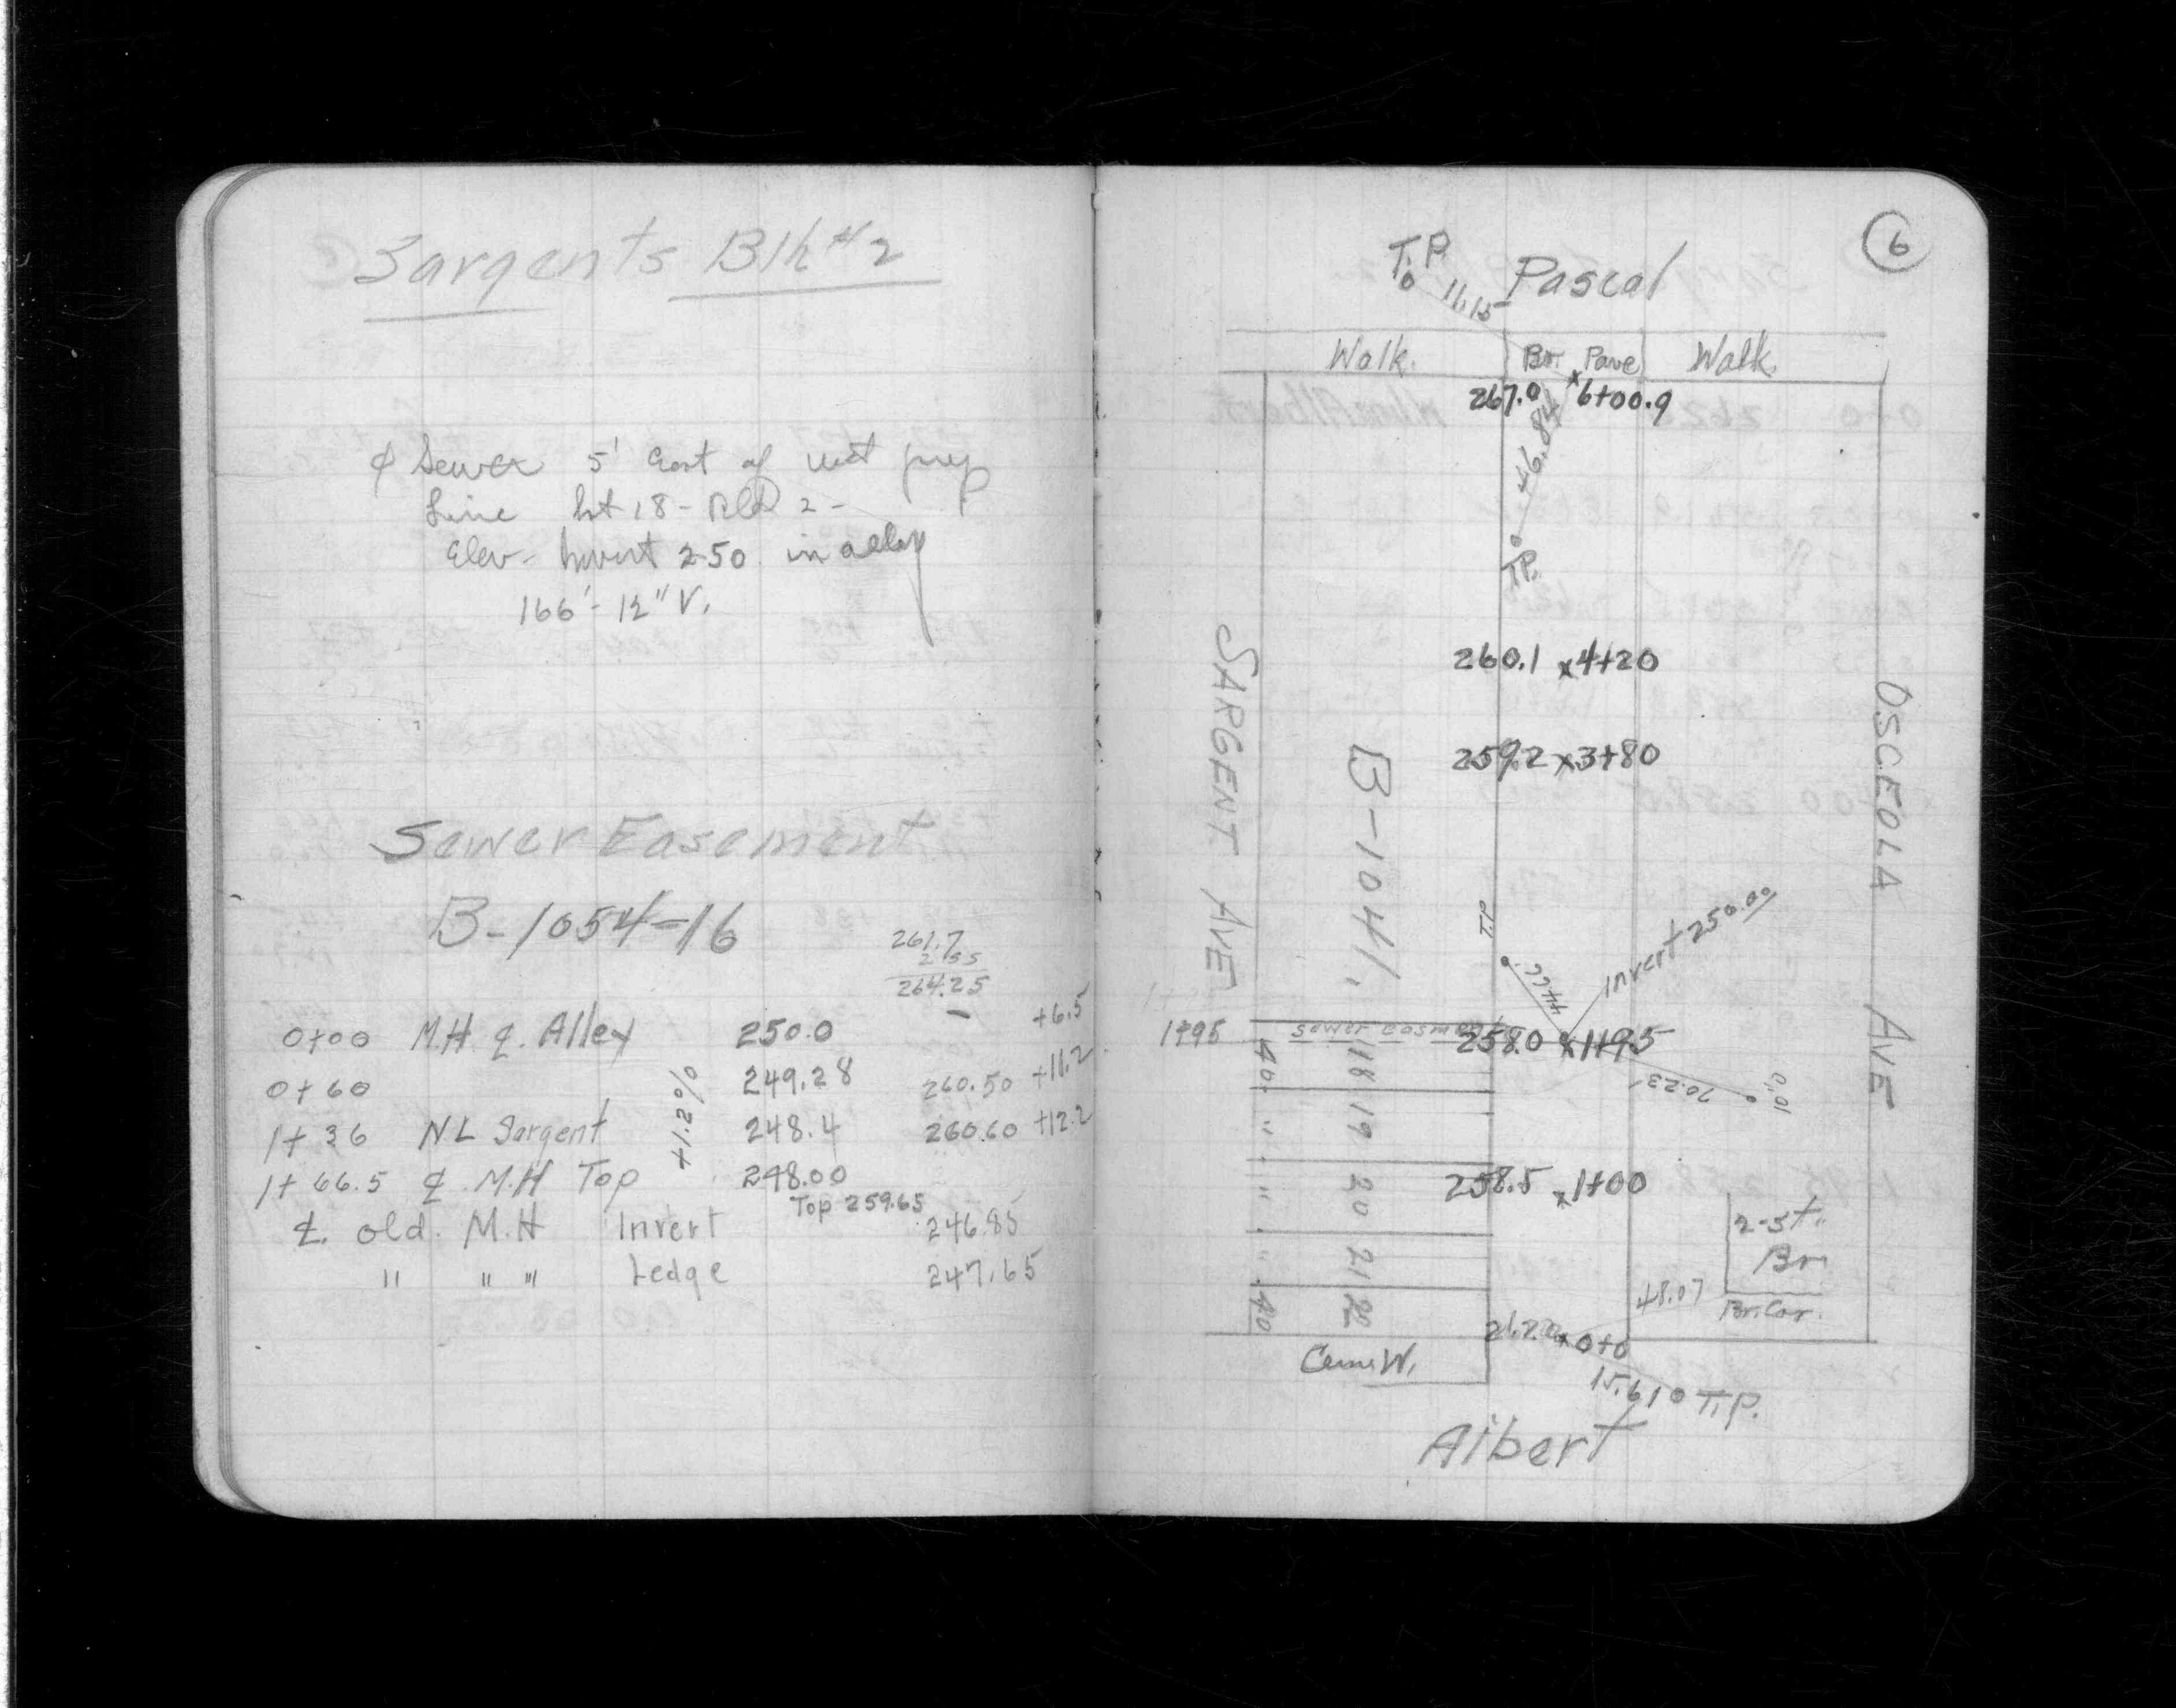 Sargents Blk #2
¢ Sewer 5' East of west prop
Line Lot 18 - Blk 2 -
Elev - Invert 250 in alley
166' - 12" V.
Sewer Easement
B-1054-16
261.7
2.55
264.25
0+00 M.H ¢. Alley 250.0 - +6.5
0+60 249.28 260.50 +11.2
+1.2%
1+36 N L Sargent 248.4 260.60 +12.2
1+66.5 ¢ M.H Top 248.00
Top 259.65
¢ old. M.H Invert 246.85
" " " Ledge 247.65
6
T.P.
11.15
Pascal
Walk. Br. Pave Walk.
267.0 x 6+00.9
46.84
T.P.
260.1 x 4+20
259.2 x 3+80
SARGENT AVE
B-1041,
OSCEOLA AVE
TP
44.66
Invert 250.00
1+95 sewer easment 258.0 x 1+95
70.23
40 18
" 19
" 20
" 21
40 22
258.5 x 1+00
2-St.
Br
Br. Cor.
48.07
0+0
Cem. W.
15.61 T.P.
Albert